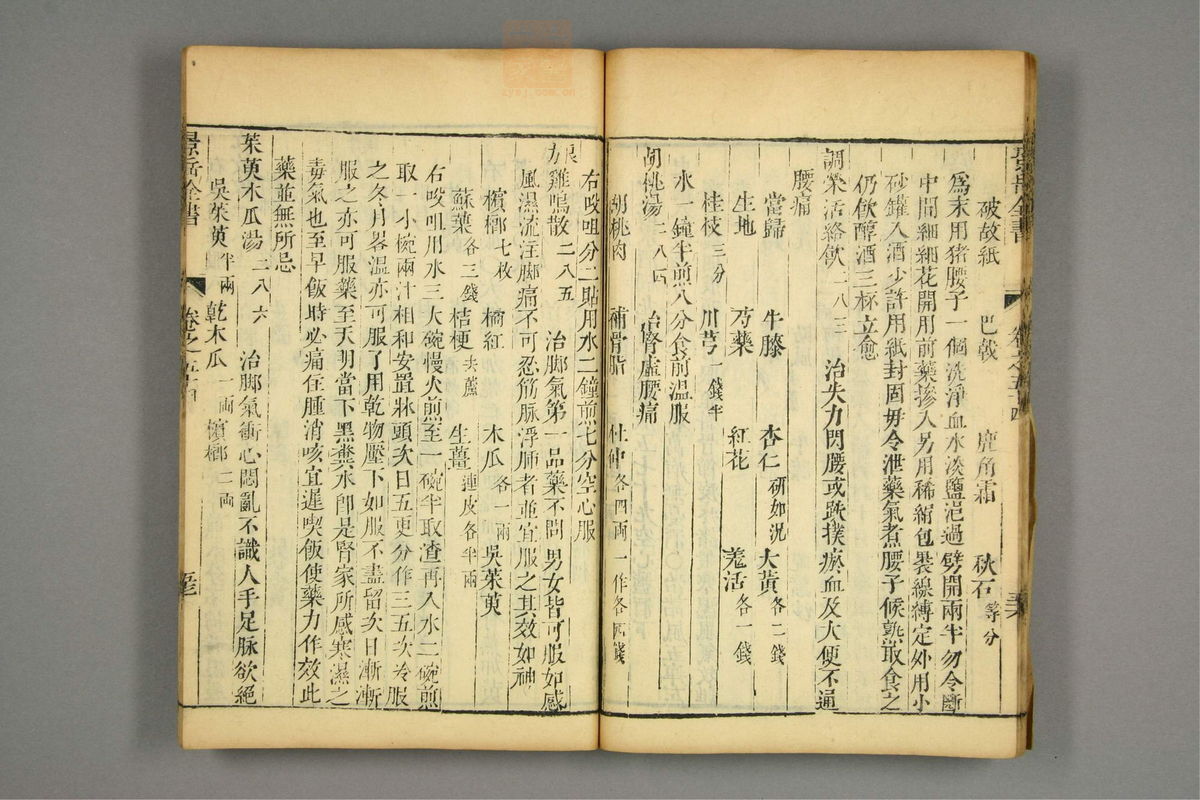 破故紙 巴戟 鹿角霜 秋石等分
爲末用猪腰子一個洗淨血水淡鹽浥過劈開兩半勿令斷
中間細細花開用前藥摻入另用稀絹包裹線縛定外用小
砂罐入酒少許用紙封固毋令泄藥氣煮腰子候熟取食之
仍飲醇酒三杯立愈
調榮活絡飲 二八三 治失力閃腰或跌撲瘀血及大便不通
腰痛
當歸 牛膝 杏仁研如泥 大黃各二錢
生地 芍藥 紅花 羗活各一錢
桂枝三分 川芎一錢半
水一鐘半煎八分食前溫服
胡桃湯 二八四 治腎虛腰痛
胡桃肉 補骨脂 杜仲各四兩一作各四錢
右㕮咀分二貼用水二鐘煎七分空心服
雞鳴散 二八五 治脚氣第一品藥不問男女皆可服如感
風濕流注脚痛不可忍筋脉浮腫者並宜服之其效如神
檳榔七枚 橘紅 木瓜各一兩 吳茱萸
蘇葉各三錢 桔梗去蘆 生薑連皮各半兩
右㕮咀用水三大碗慢火煎至一碗半取渣再入水二碗煎
取一小碗兩汁相和安置牀頭次日五更分作三五次冷服
之冬月畧溫亦可服了用乾物壓下如服不盡留次日漸漸
服之亦可服藥至天明當下黑糞水卽是腎家所感寒濕之
毒氣也至早飯時必痛住腫消咳宜遲喫飯使藥力作效此
藥並無所忌
茱萸木瓜湯 二八六 治脚氣衝心悶亂不識人手足脉欲絕
吳茱萸半兩 乾木瓜一兩 檳榔二兩
景岳全書 卷之五十四